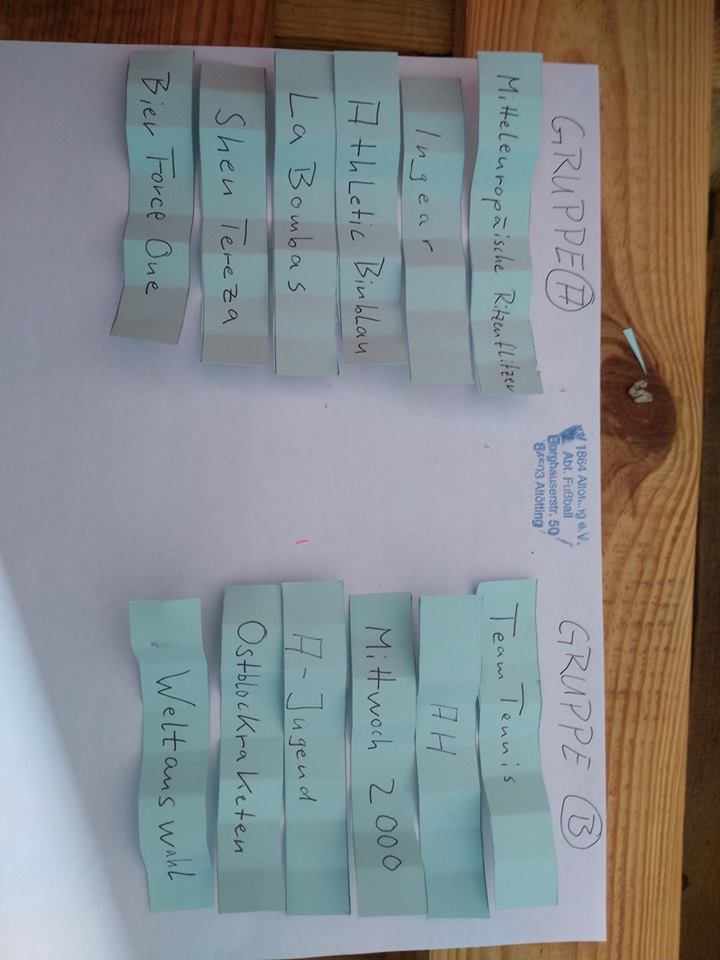 GRUPPE A
Mitteleuropäische Ritzenflitzer
Ingear
Athletic Binblau
La Bombas
Shen Tereza
Bier Force One
1864 Altötting e.V.
Abt. Fußball
Burghauserstr. 50
84503 Altötting
GRUPPE B
Team Tennis
AH
Mittwoch 2000
A-Jugend
Ostblockraketen
Weltauswahl